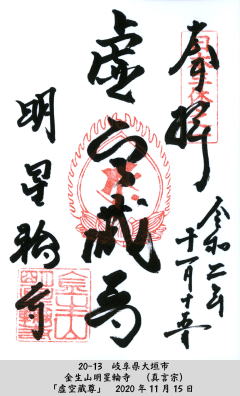 奉拝
令和二年
十一月十五日
虚空蔵尊
明星輪寺
金生山
20-13 岐阜県大垣市
金生山明星輪寺 (真言宗)
「虚空蔵尊」 2020年11月15日